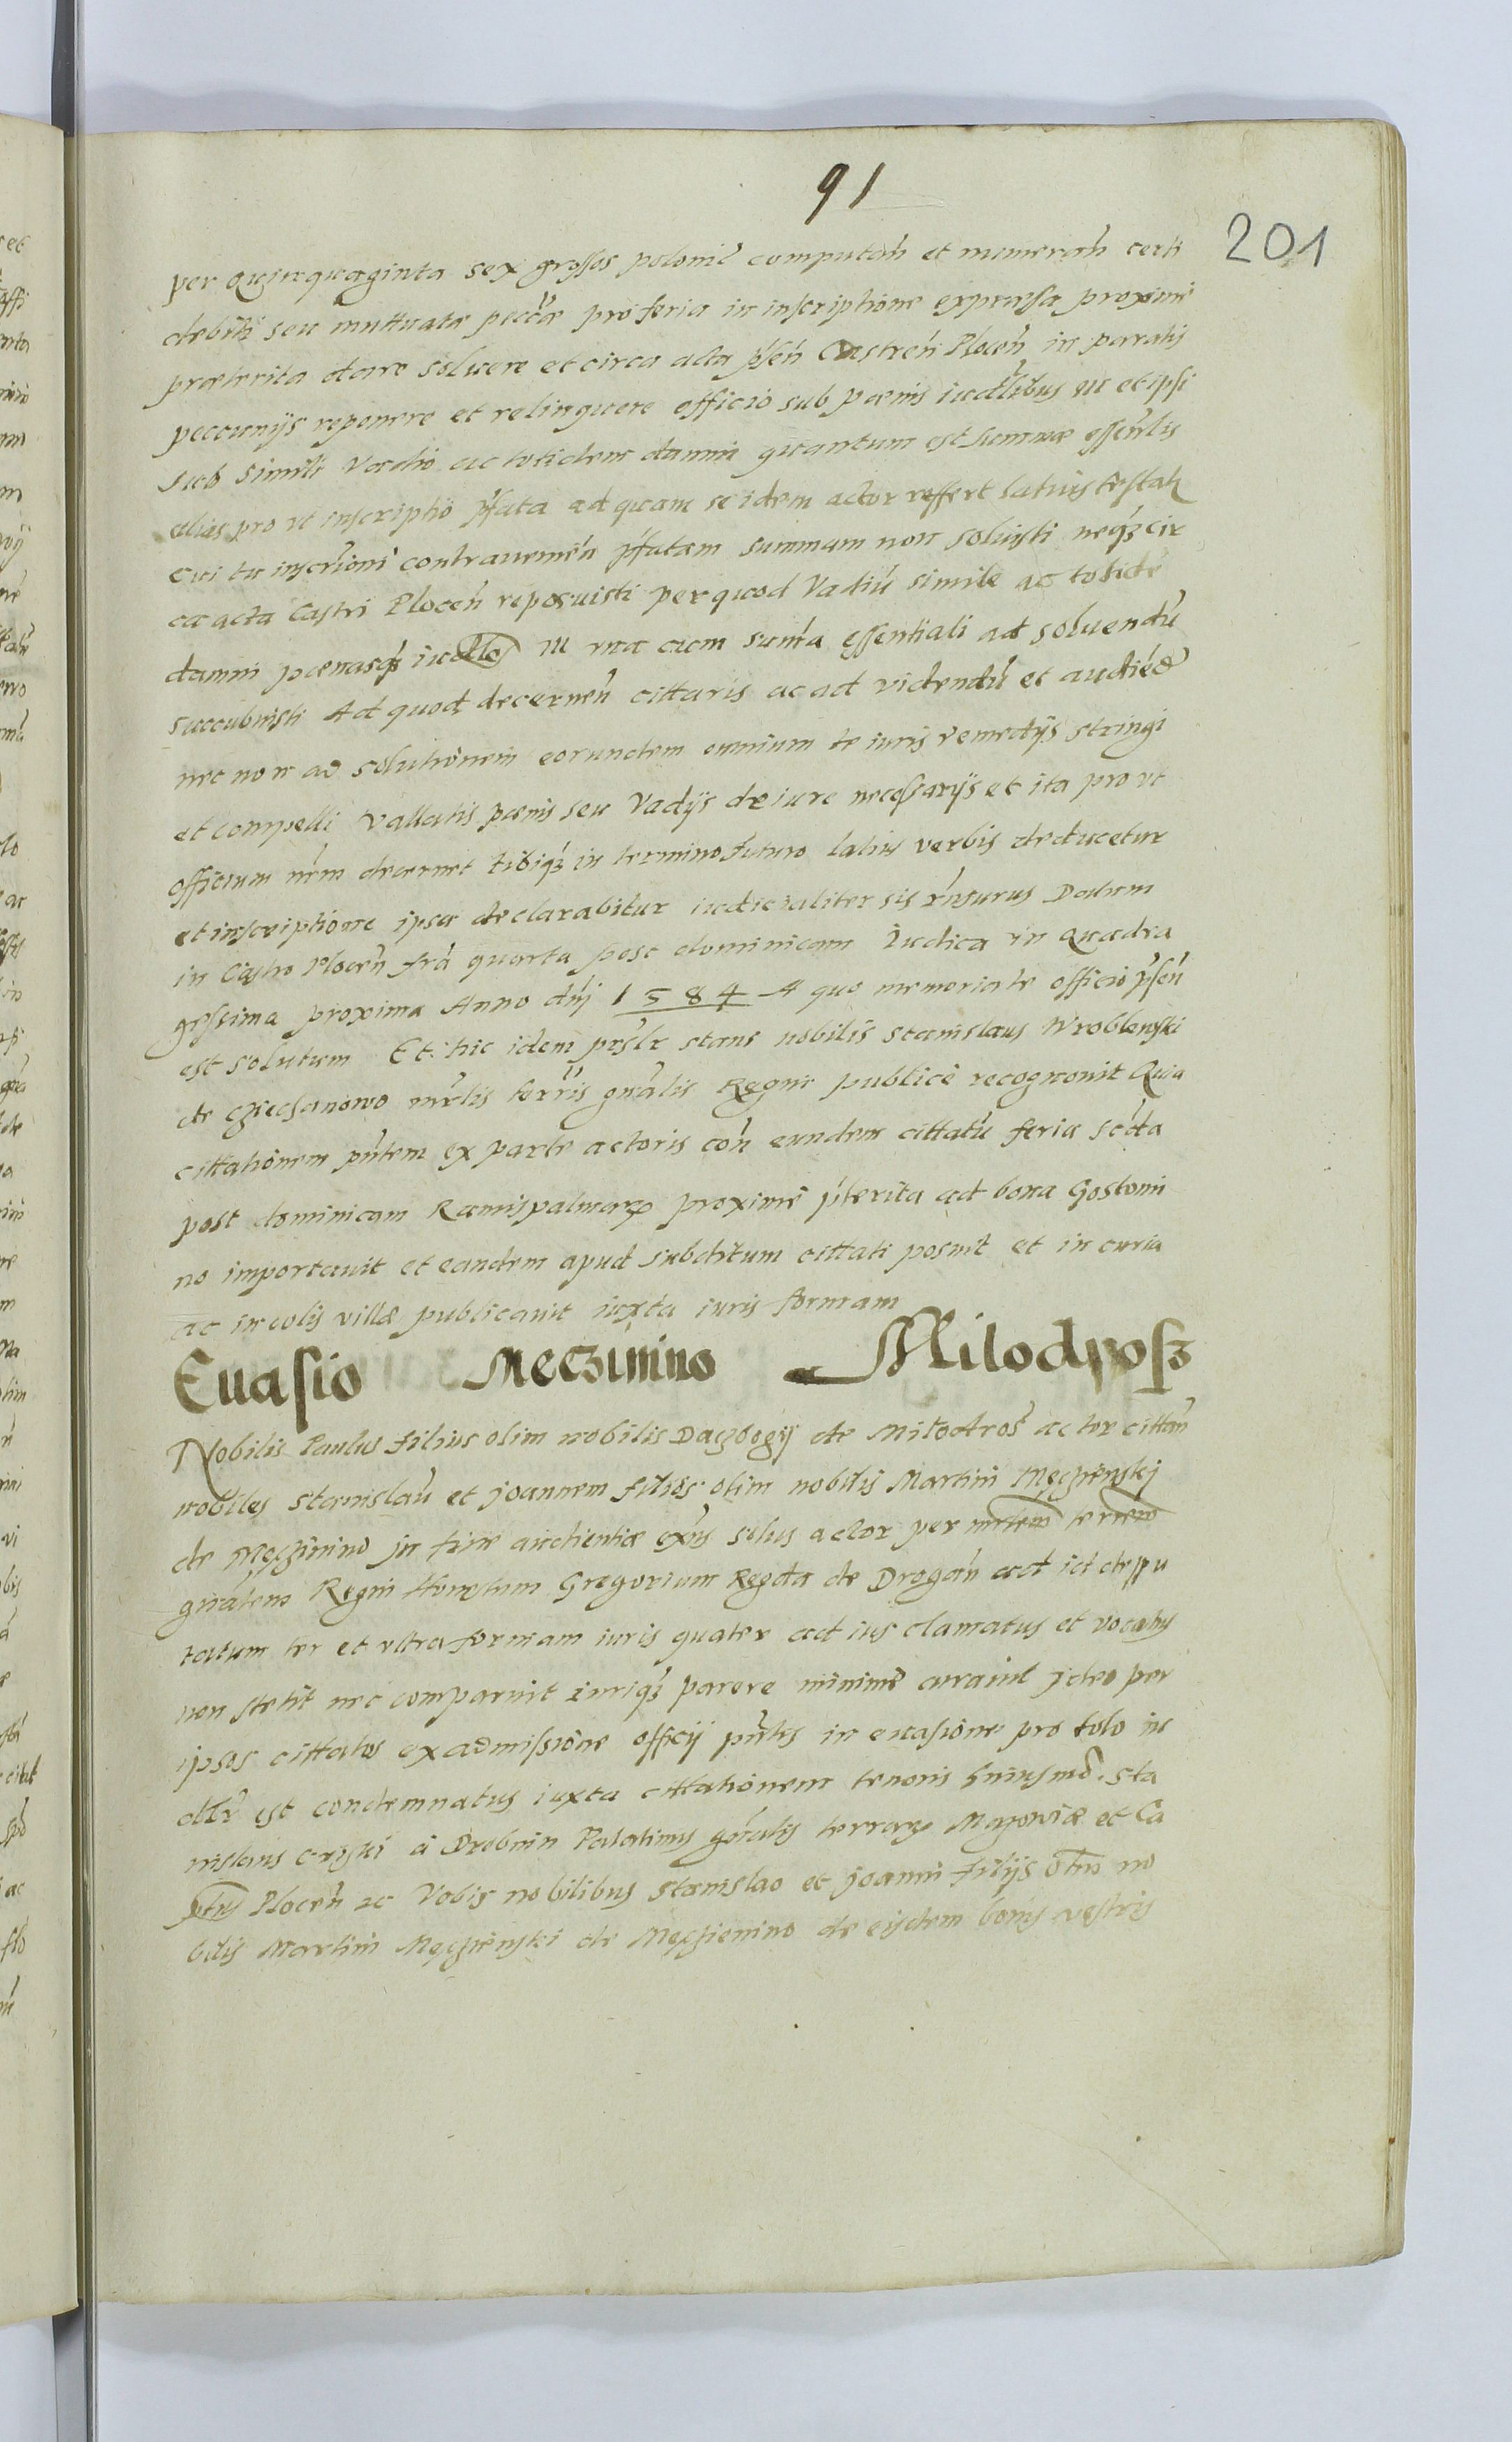 91
201
per Quinquaginta sex grossos polonic̃ computañ et numerañ certi
debiti seu muttuatæ pecc̃æ pro feria in inscriptione expræssa proxime
præterita dare soluere et circa acta p̃señ Castreñ Ploceñ in paratis
peccunijs reponere et relinquere officio sub pænis iud̃libus ac et ipsi
sub simili vadio ac totidem damni quantum est summæ essen̄lis
alias pro vt inscriptio p̃fata ad quam se idem actor reffert latius testatᷣ
Cui tu inscri̇oni contraueniẽn p̃fatam summam non soluisti neqȝ cir
ca acta Castri Ploceñ reposuisti per quod Vadiũ simile ac totidẽ
damni pænasqȝ iud̃les III vna cum sum̃a essentiali ad soluendũ
succubuisti Ad quod decerneñ cittaris ac ad videndũ et audiẽd
nec non ad solutionem eorundem omnium te iuris remedijs stringi
et compelli vallatis pænis seu Vadijs de iure necessarijs et ita pro vt
officium nr̃m decernet tibiqȝ in termino futuro latius verbis deducetur
et inscriptione ipsa declarabitur iudicialiter sis rñsurus Datum
in Castro Ploceñ fr̃a quarta post dominicam Iudica in Quadra
gessima proxima Anno dñj 1584 A quo memoriale officio p̃señ
est solutum Et hic idem pr̃slr stans nobilis Stanislaus Wroblewski
de Cziechanowo mr̃lis terr̃is gnãlis Regni publice recognouit Quia
cittationem pñtem ex parte actoris coñ eundem cittatũ feria scd̃a
post dominicam Ramispalmarꝝ proxime p̃terita ad bona Gostomi
no importauit et eandem apud subditum cittati posuit et in curia
ac incolis villæ publicauit iuxta iuris formam
Euasio Meczinino Milodrosz
Nobilis Paulus filius olim nobilis Daczbogij de Milodros̃ actor cittañ
nobiles Stanislaũ et Joannem filios olim nobilis Martini Męczienskj
de Męczinino in fine audientiæ exñs solus actor per mr̃lem terr̃em
gnãlem Regni Honestum Gregorium Regda de Drogañ ad id deppu
tatum ter et vltra formam iuris quater ad ius clamatus et vocatus
non stetit nec comparuit iuriqȝ parere minime curauit Jdeo per
ipsos cittatos ex admissione officij pñtis in euasione pro tolo iu
dilr̃ est condemnatus iuxta cittationem tenoris huiusmõ. Sta
nislaus Criski à Drobnin Palatinus gñralis terrarꝝ Mazowiæ et Ca
ptus Ploceñ ꝛc Vobis nobilibus Stanislao et Joanni filijs olim no
bilis Martini Męczienski de Męczienino de eisdem bonis vestris